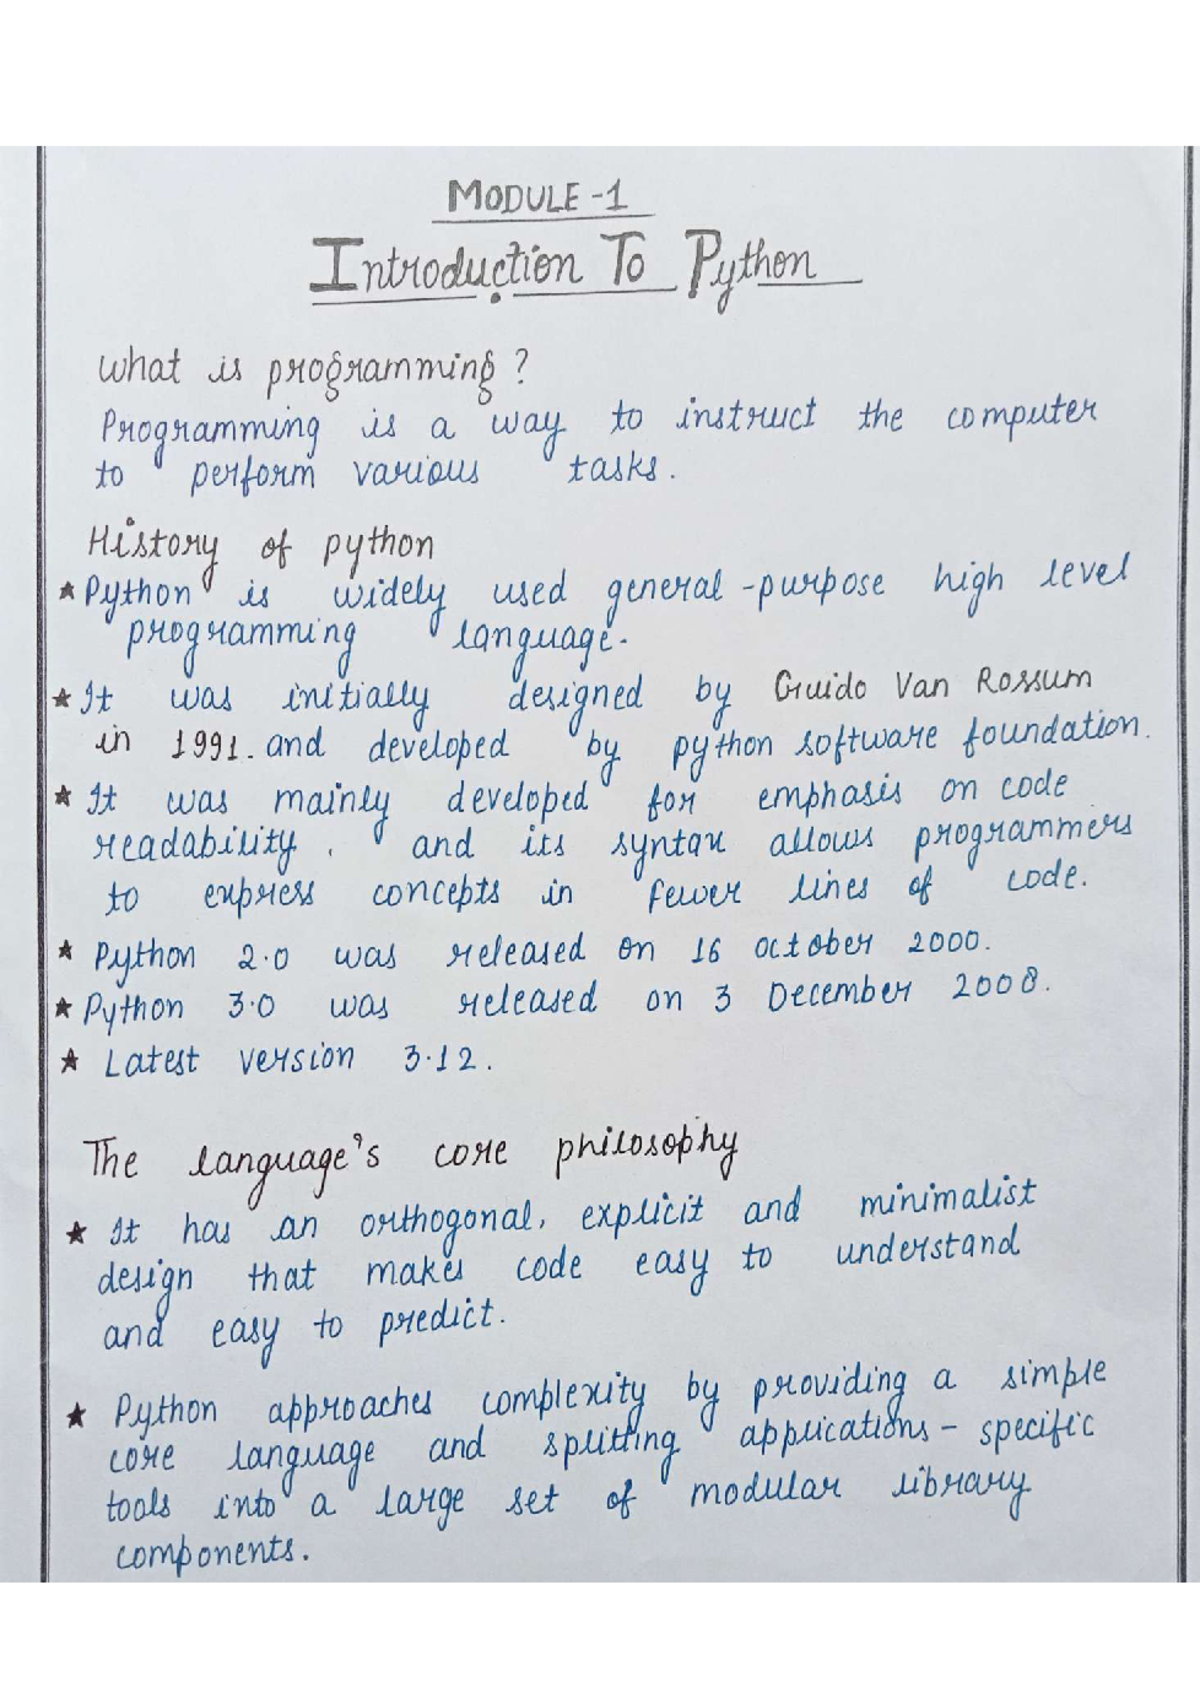 MODULE -1
Introduction To Python
What is programming ?
Programming is a way to instruct the computer
to perform various tasks.
History of python
★ Python is widely used general-purpose high level
programming language.
★ It was initially designed by Guido Van Rossum
in 1991. and developed by python software foundation.
★ It was mainly developed for emphasis on code
readability, and its syntax allows programmers
to express concepts in fewer lines of code.
★ Python 2.0 was released on 16 october 2000.
★ Python 3.0 was released on 3 December 2008.
★ Latest version 3.12.
The language's core philosophy
★ It has an orthogonal, explicit and minimalist
design that makes code easy to understand
and easy to predict.
★ Python approaches complexity by providing a simple
core language and splitting applications - specific
tools into a large set of modular library
components.